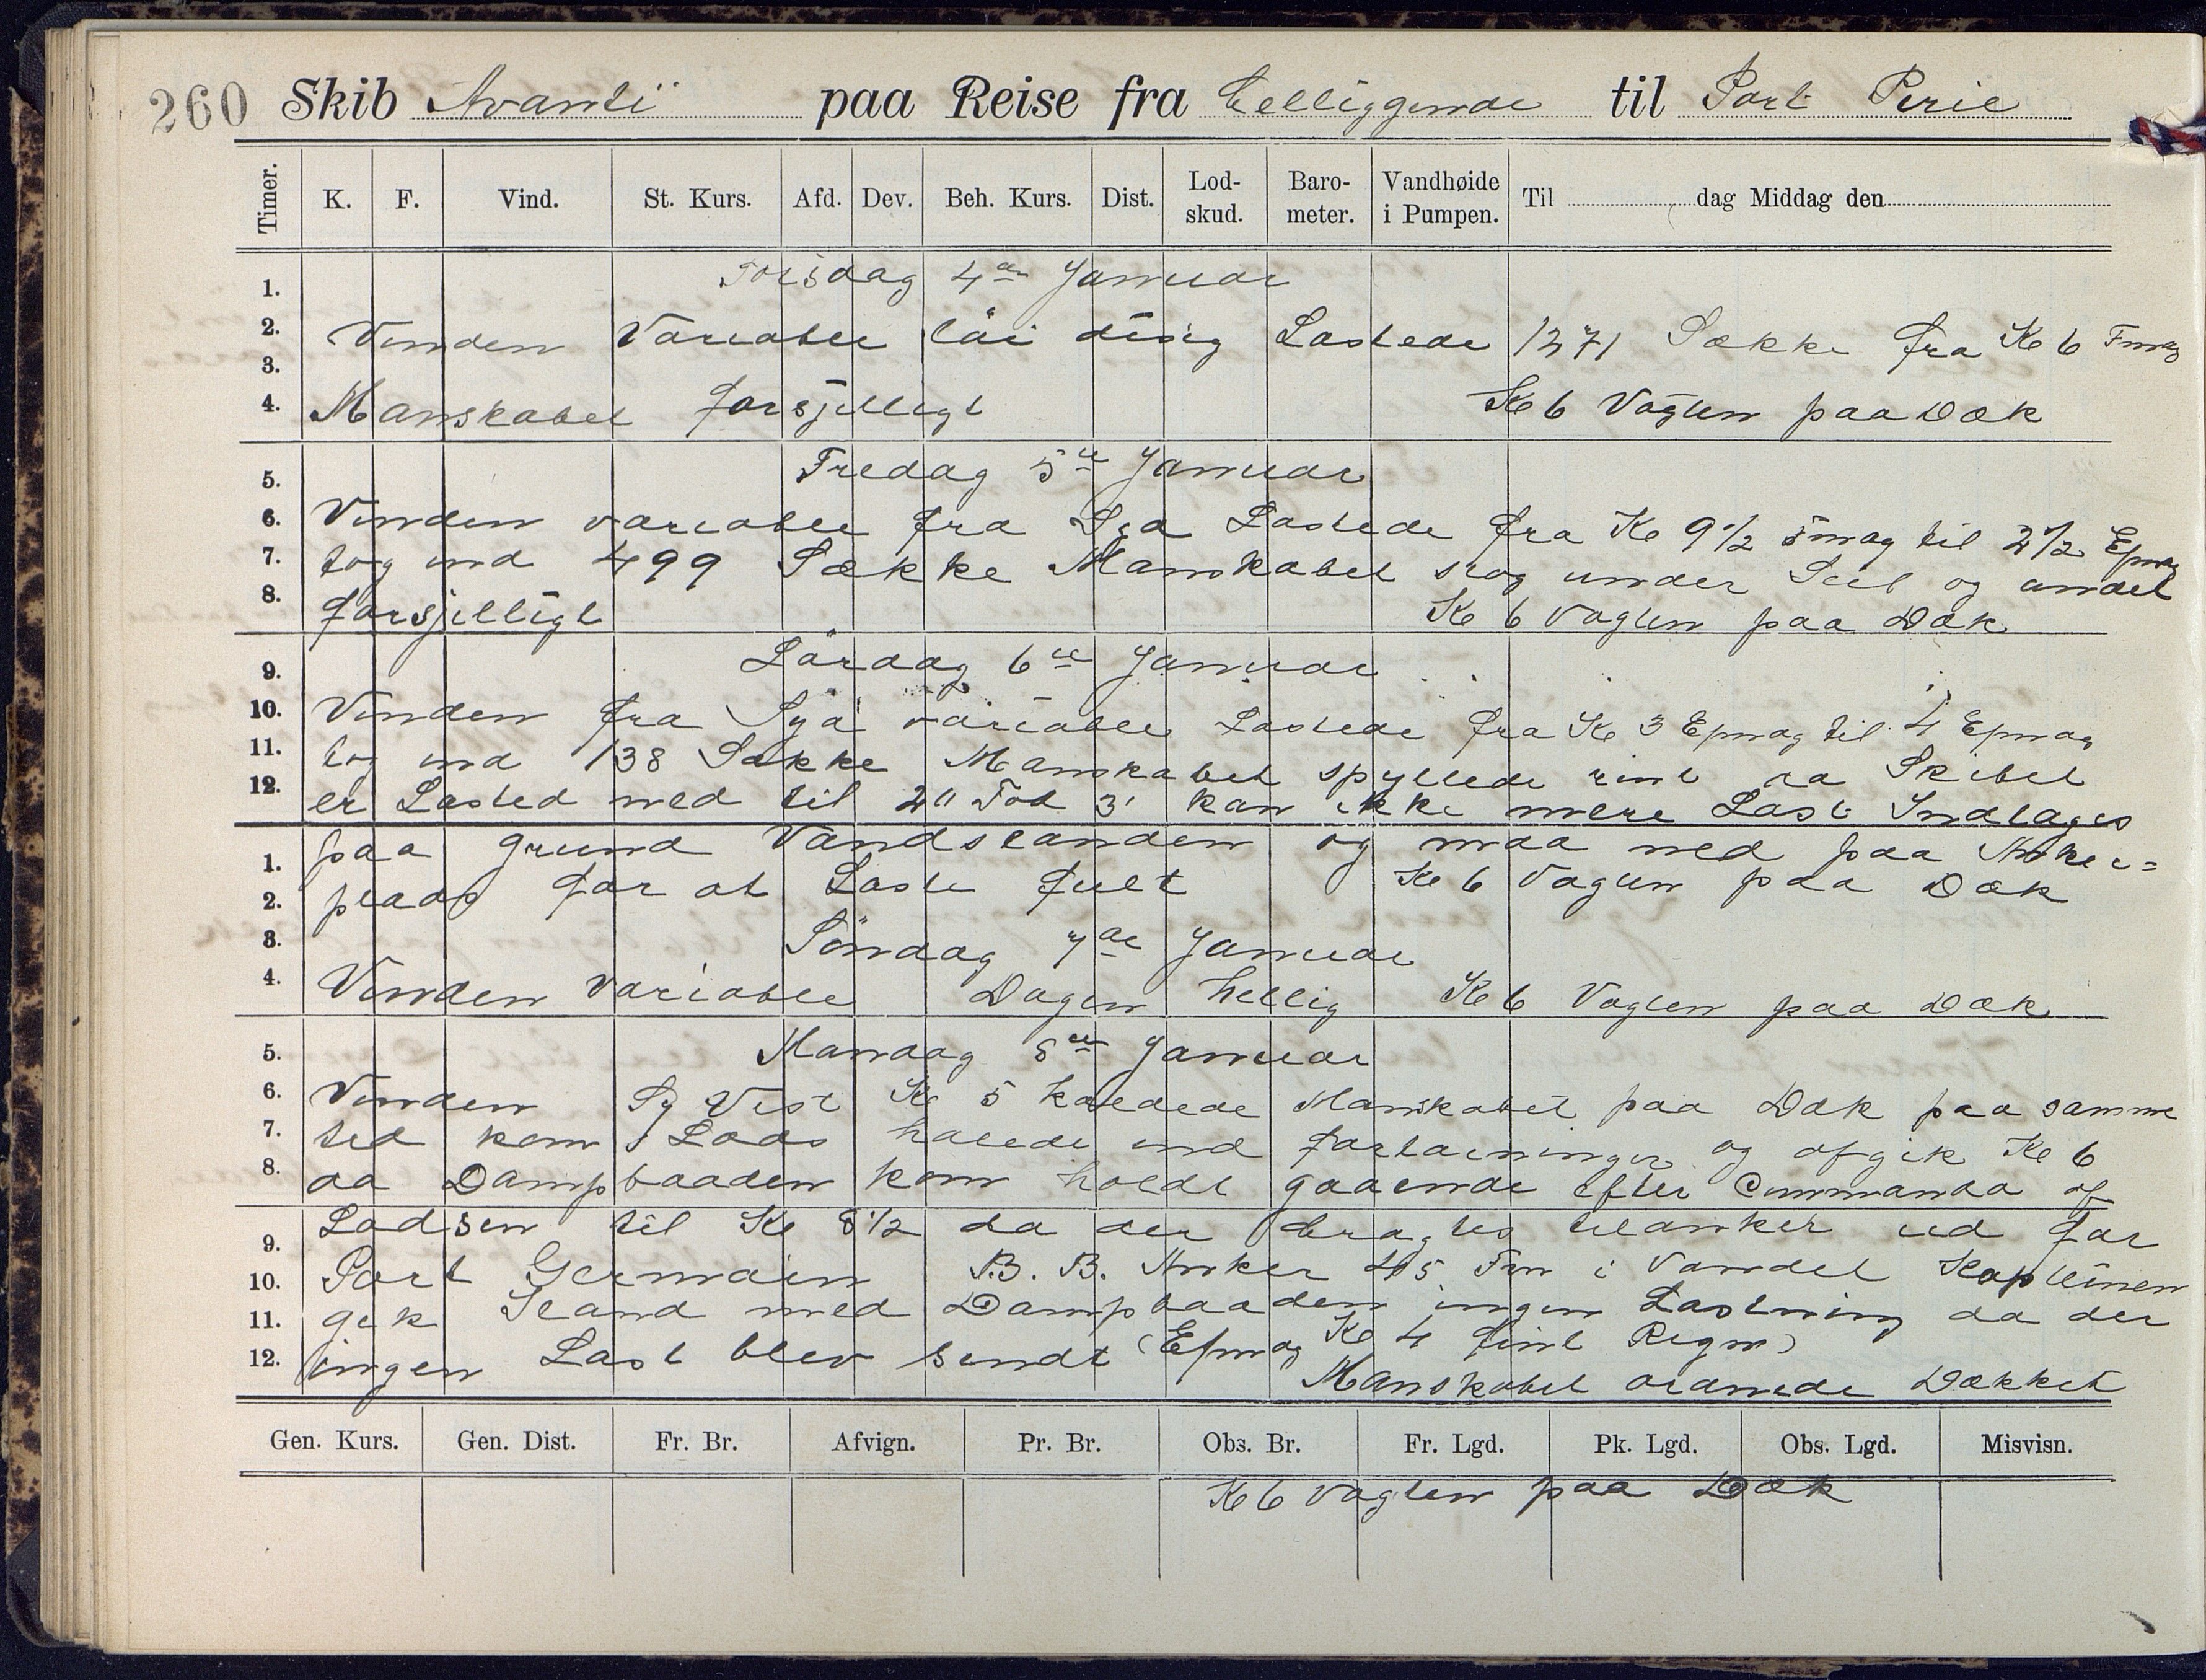 260 Skib Avanti paa Reise fra Tilliggende til Port Perie
Timer. K. F. Vind. St. Kurs. Afd. Dev. Beh. Kurs. Dist. Lod-skud. Baro-meter. Vandhøide i Pumpen. Til dag Middag den
1. Torsdag 4de Januar
2. Vinden Variable lai disig Lastede 1271 Sække fra Kl 6 Fmag
3.
4. Manskabet forsjelligt Kl 6 Vagten paa Dæk
5. Fredag 5te Januar
6. Vinden variable fra Syd Lastede fra Kl 9 1/2 fmag til 2 1/2 Epmag
7. tog ind 499 Sække Manskabet slog under Seil og andet
8. forsjelligt Kl 6 Vagten paa Dæk
9. Lørdag 6te Januar
10. Vinden fra Syd variable Lastede fra Kl 3 Epmag til 4 Epmag
11. tog ind 138 Sække Manskabet spyllede rint da Skibet
12. er Lasted ned til 20 Fod 3" kan ikke mere Last Indtages
1. paa grund Vandstanden og maa ned paa Anker=
2. plads for at Laste fult Kl 6 Vagten paa Dæk
3. Söndag 7de Januar
4. Vinden Variable Dagen hellig Kl 6 Vagten paa Dæk
5. Mandag 8de Januar
6. Vinden Sy Vest Kl 5 kaldede Manskabet paa Dæk paa samme
7. tid kom Lods halede ind fortøininger og afgik Kl 6
8. da Dampbaaden kom holdt gaaende efter Commando af
9. Lodsen til Kl 8 1/2 da der bragtes tilanker ud for
10. Port Germain B. B. Anker 45 Fvn i Vandet Kapteinen
11. gik Iland med Dampbaaden ingen Lastning da der
12. ingen Last blev sendt (Epmag Kl 4 fint Regn)
Manskabet ordnede Dækket
Gen. Kurs. Gen. Dist. Fr. Br. Afvign. Pr. Br. Obs. Br. Fr. Lgd. Pk. Lgd. Obs. Lgd. Misvisn.
Kl 6 vagten paa Dæk